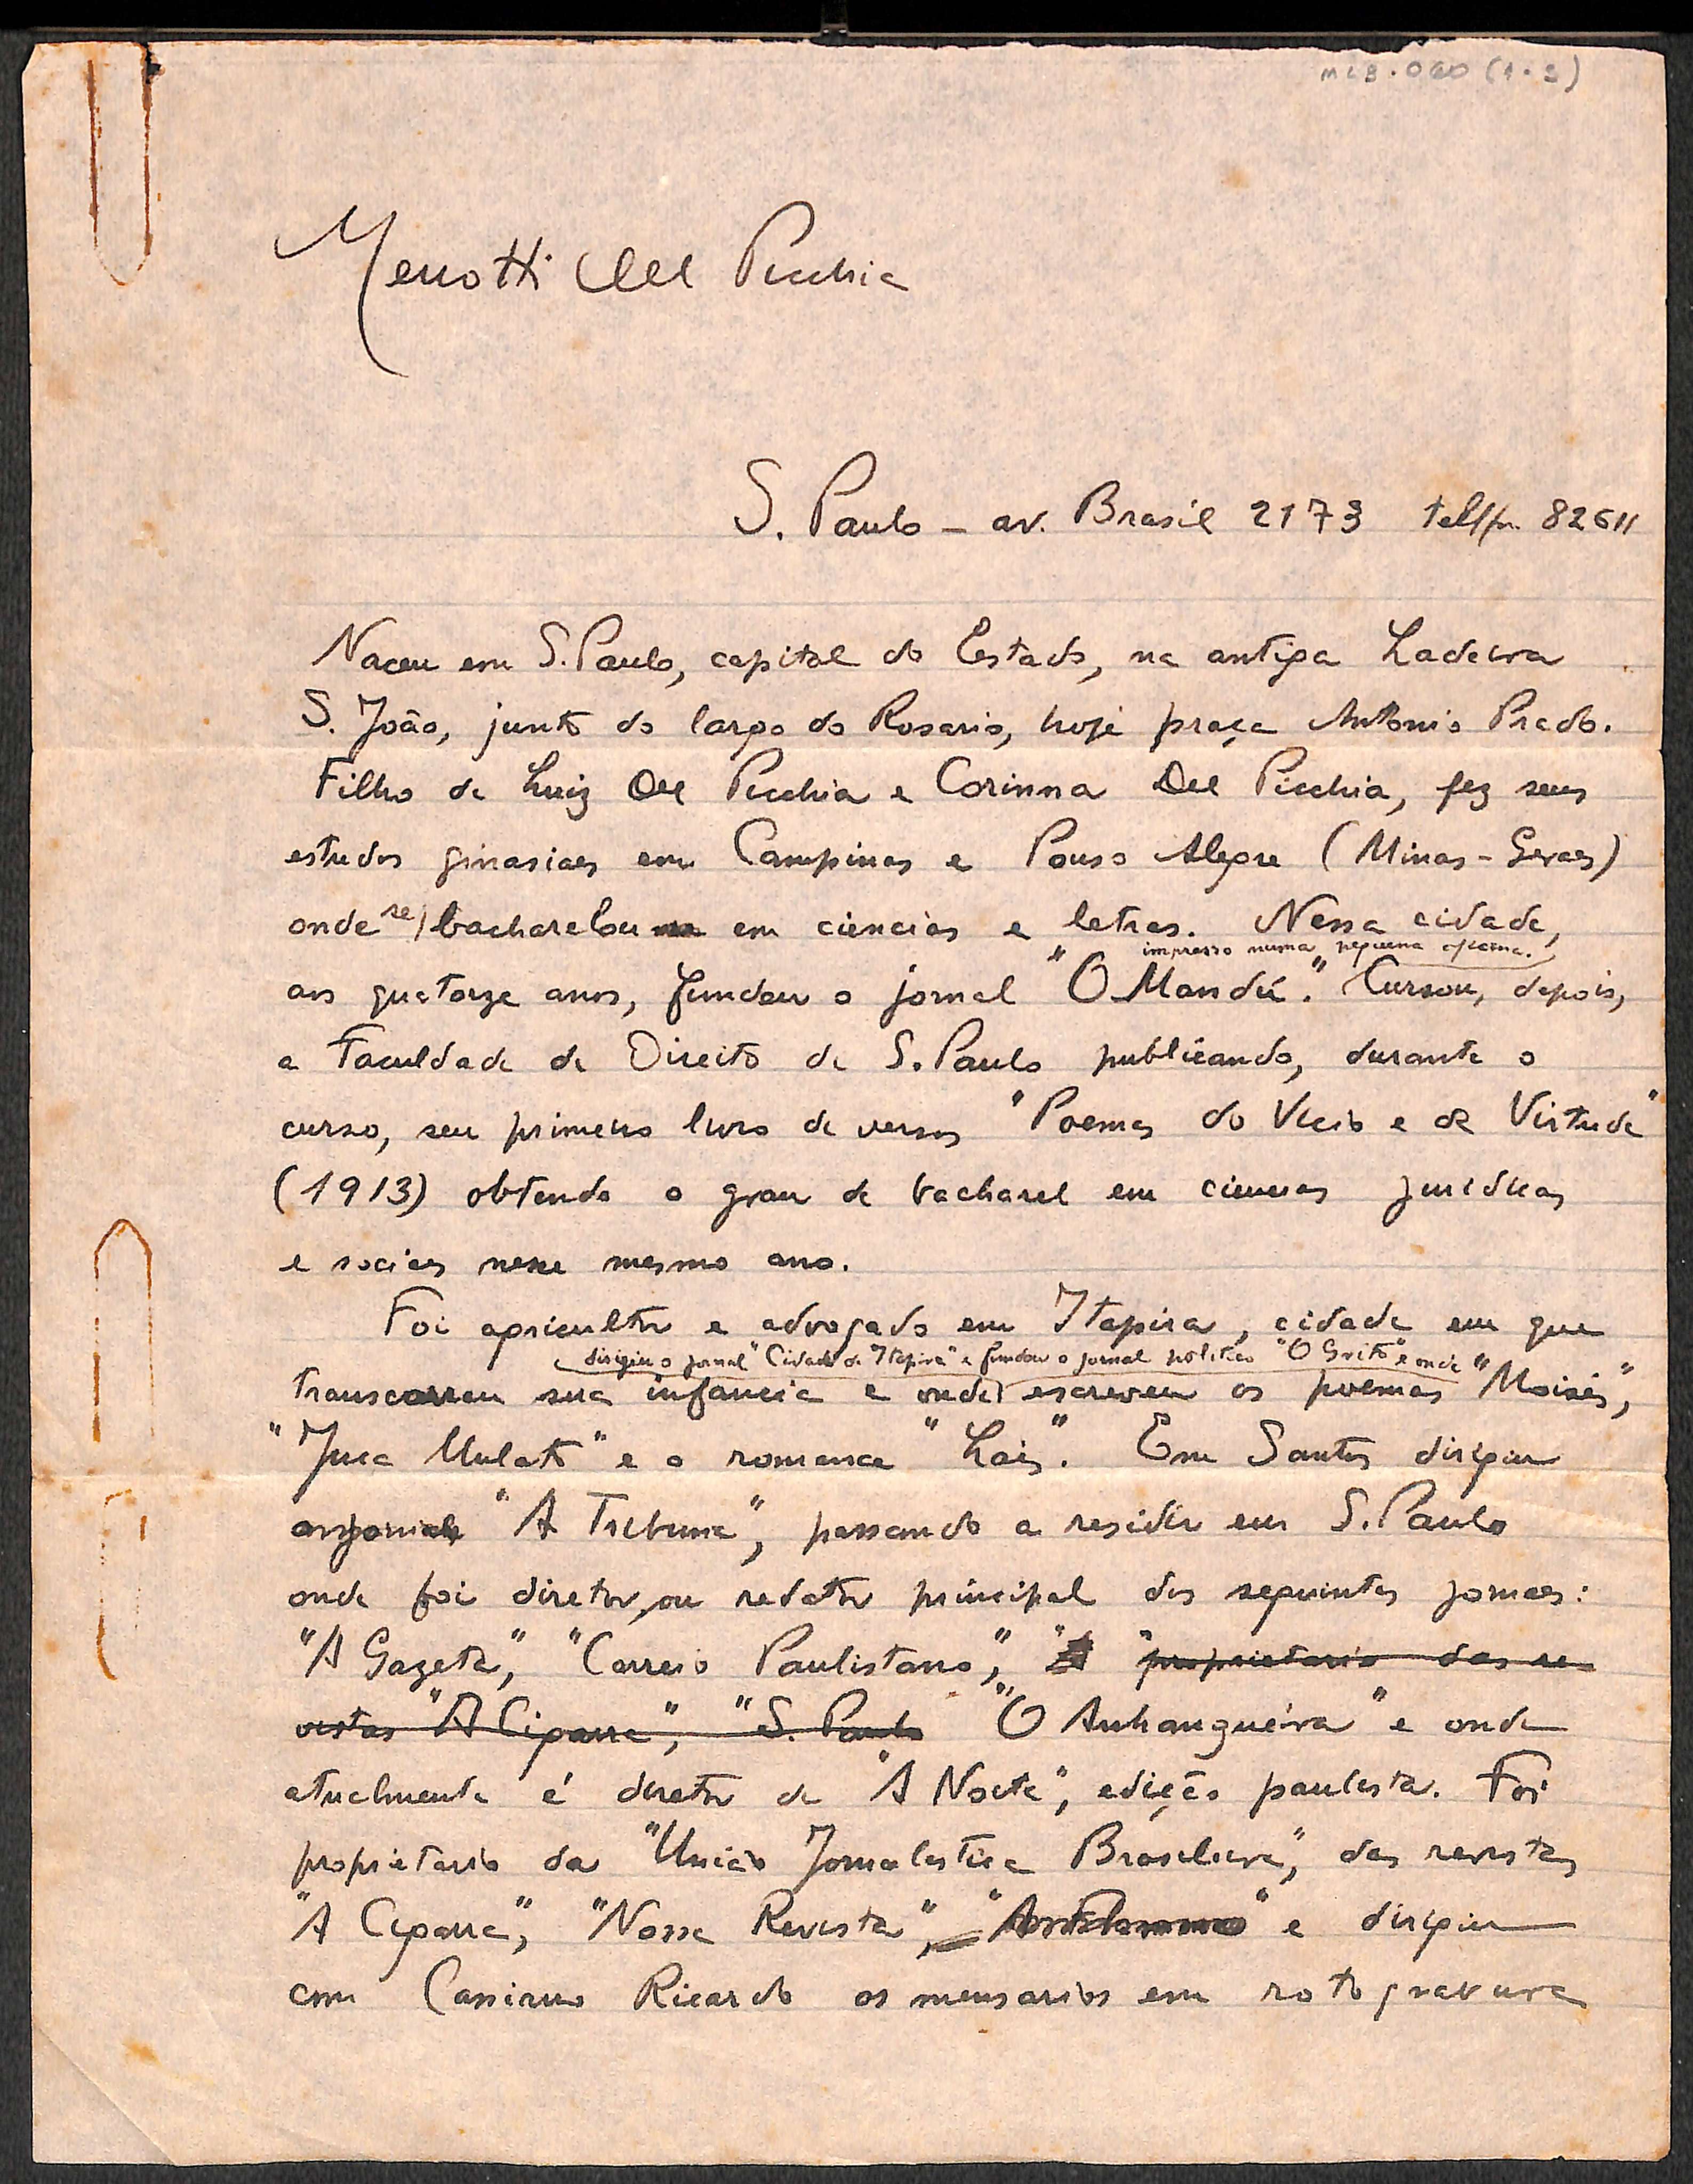 MLB.060 (1.2)
Menotti Del Picchia
S. Paulo - av. Brasil 2173 82611
Naceu em S. Paulo, capital do Estado, na antiga Ladeira
S. João, junto do largo do Rosario, hoje praça Antonio Prado.
Filho de Luiz Del Picchia e Corinna Del Picchia, fez seus
estudos ginasiaes em Campinas e Pouso Alegre (Minas-Geraes)
onde se bacharelou em ciencias e letras. Nessa cidade,
impresso numa pequena oficina.
aos quatorze anos, fundou o jornal "O Mandú". Cursou, depois,
a Faculdade de Direito de S. Paulo publicando, durante o
curso, seu primeiro livro de versos "Poemas do Vicio e da Virtude"
(1913) obtendo o grau de bacharel em ciencias juridicas
e sociaes nesse mesmo ano.
Foi agricultor e advogado em Itapira, cidade em que
dirigiu o jornal "Cidade de Itapira" e fundou o jornal politico "O Grito" e onde
transcorreu sua infancia e onde escreveu os poemas "Moisés",
"Juca Mulato" e o romance "Laís". Em Santos dirigiu
"A Tribuna", passando a residir em S. Paulo
onde foi diretor, ou redator principal dos seguintes jornaes:
"A Gazeta", "Correio Paulistano", "proprietario das re-
vistas "A Cigarra", "S. Paulo "O Anhanguéra" e onde
atualmente é diretor de "A Noite", edição paulista. Foi
proprietario da "União Jornalistica Brasileira", das revistas
"A Cigarra", "Nossa Revista", e dirigiu
com Cassiano Ricardo os mensarios em rotogravura